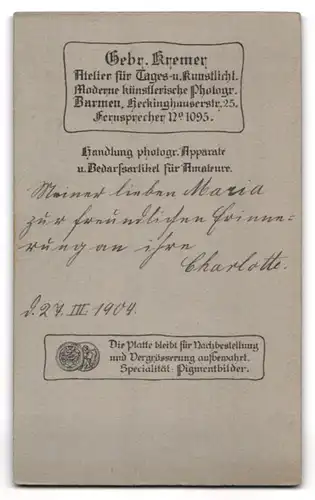 Gebr. Kremer
Atelier für Tages- u. Kunstlicht.
Moderne künstlerische Photogr.
Barmen, Heckinghauserstr. 25.
Fernsprecher No 1095.
Handlung photogr. Apparate
u. Bedarfsartikel für Amateure.
Meiner lieben Maria
zur freundlichen Erinne-
rung an ihre
Charlotte.
d. 27. III. 1904.
Die Platte bleibt für Nachbestellung
und Vergrösserung aufbewahrt.
Specialität: Pigmentbilder.